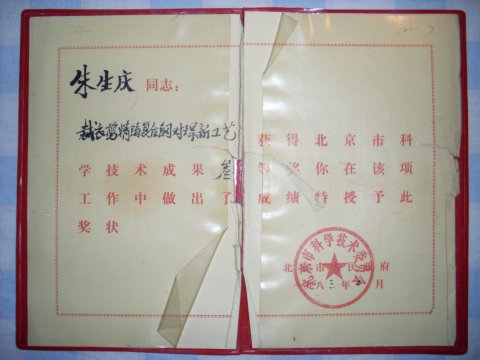 朱生庆 同志:
裁衣剪精铸复合钢对焊新工艺 获得北京市科
学技术成果叁等奖你在该项
工作中做出了成绩特授予此
奖状
北京市科学技术委员会
北京市人民政府
一九八三年 月